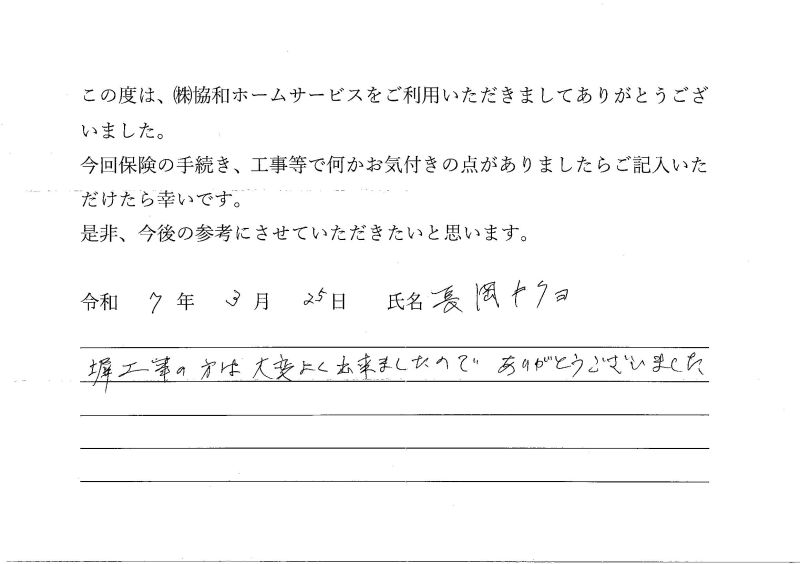 この度は、㈱協和ホームサービスをご利用いただきましてありがとうござ
いました。
今回保険の手続き、工事等で何かお気付きの点がありましたらご記入いた
だけたら幸いです。
是非、今後の参考にさせていただきたいと思います。
令和 7 年 3 月 25日 氏名 長岡キクヨ
塀工事の方は大変よく出来ましたので ありがとうございました